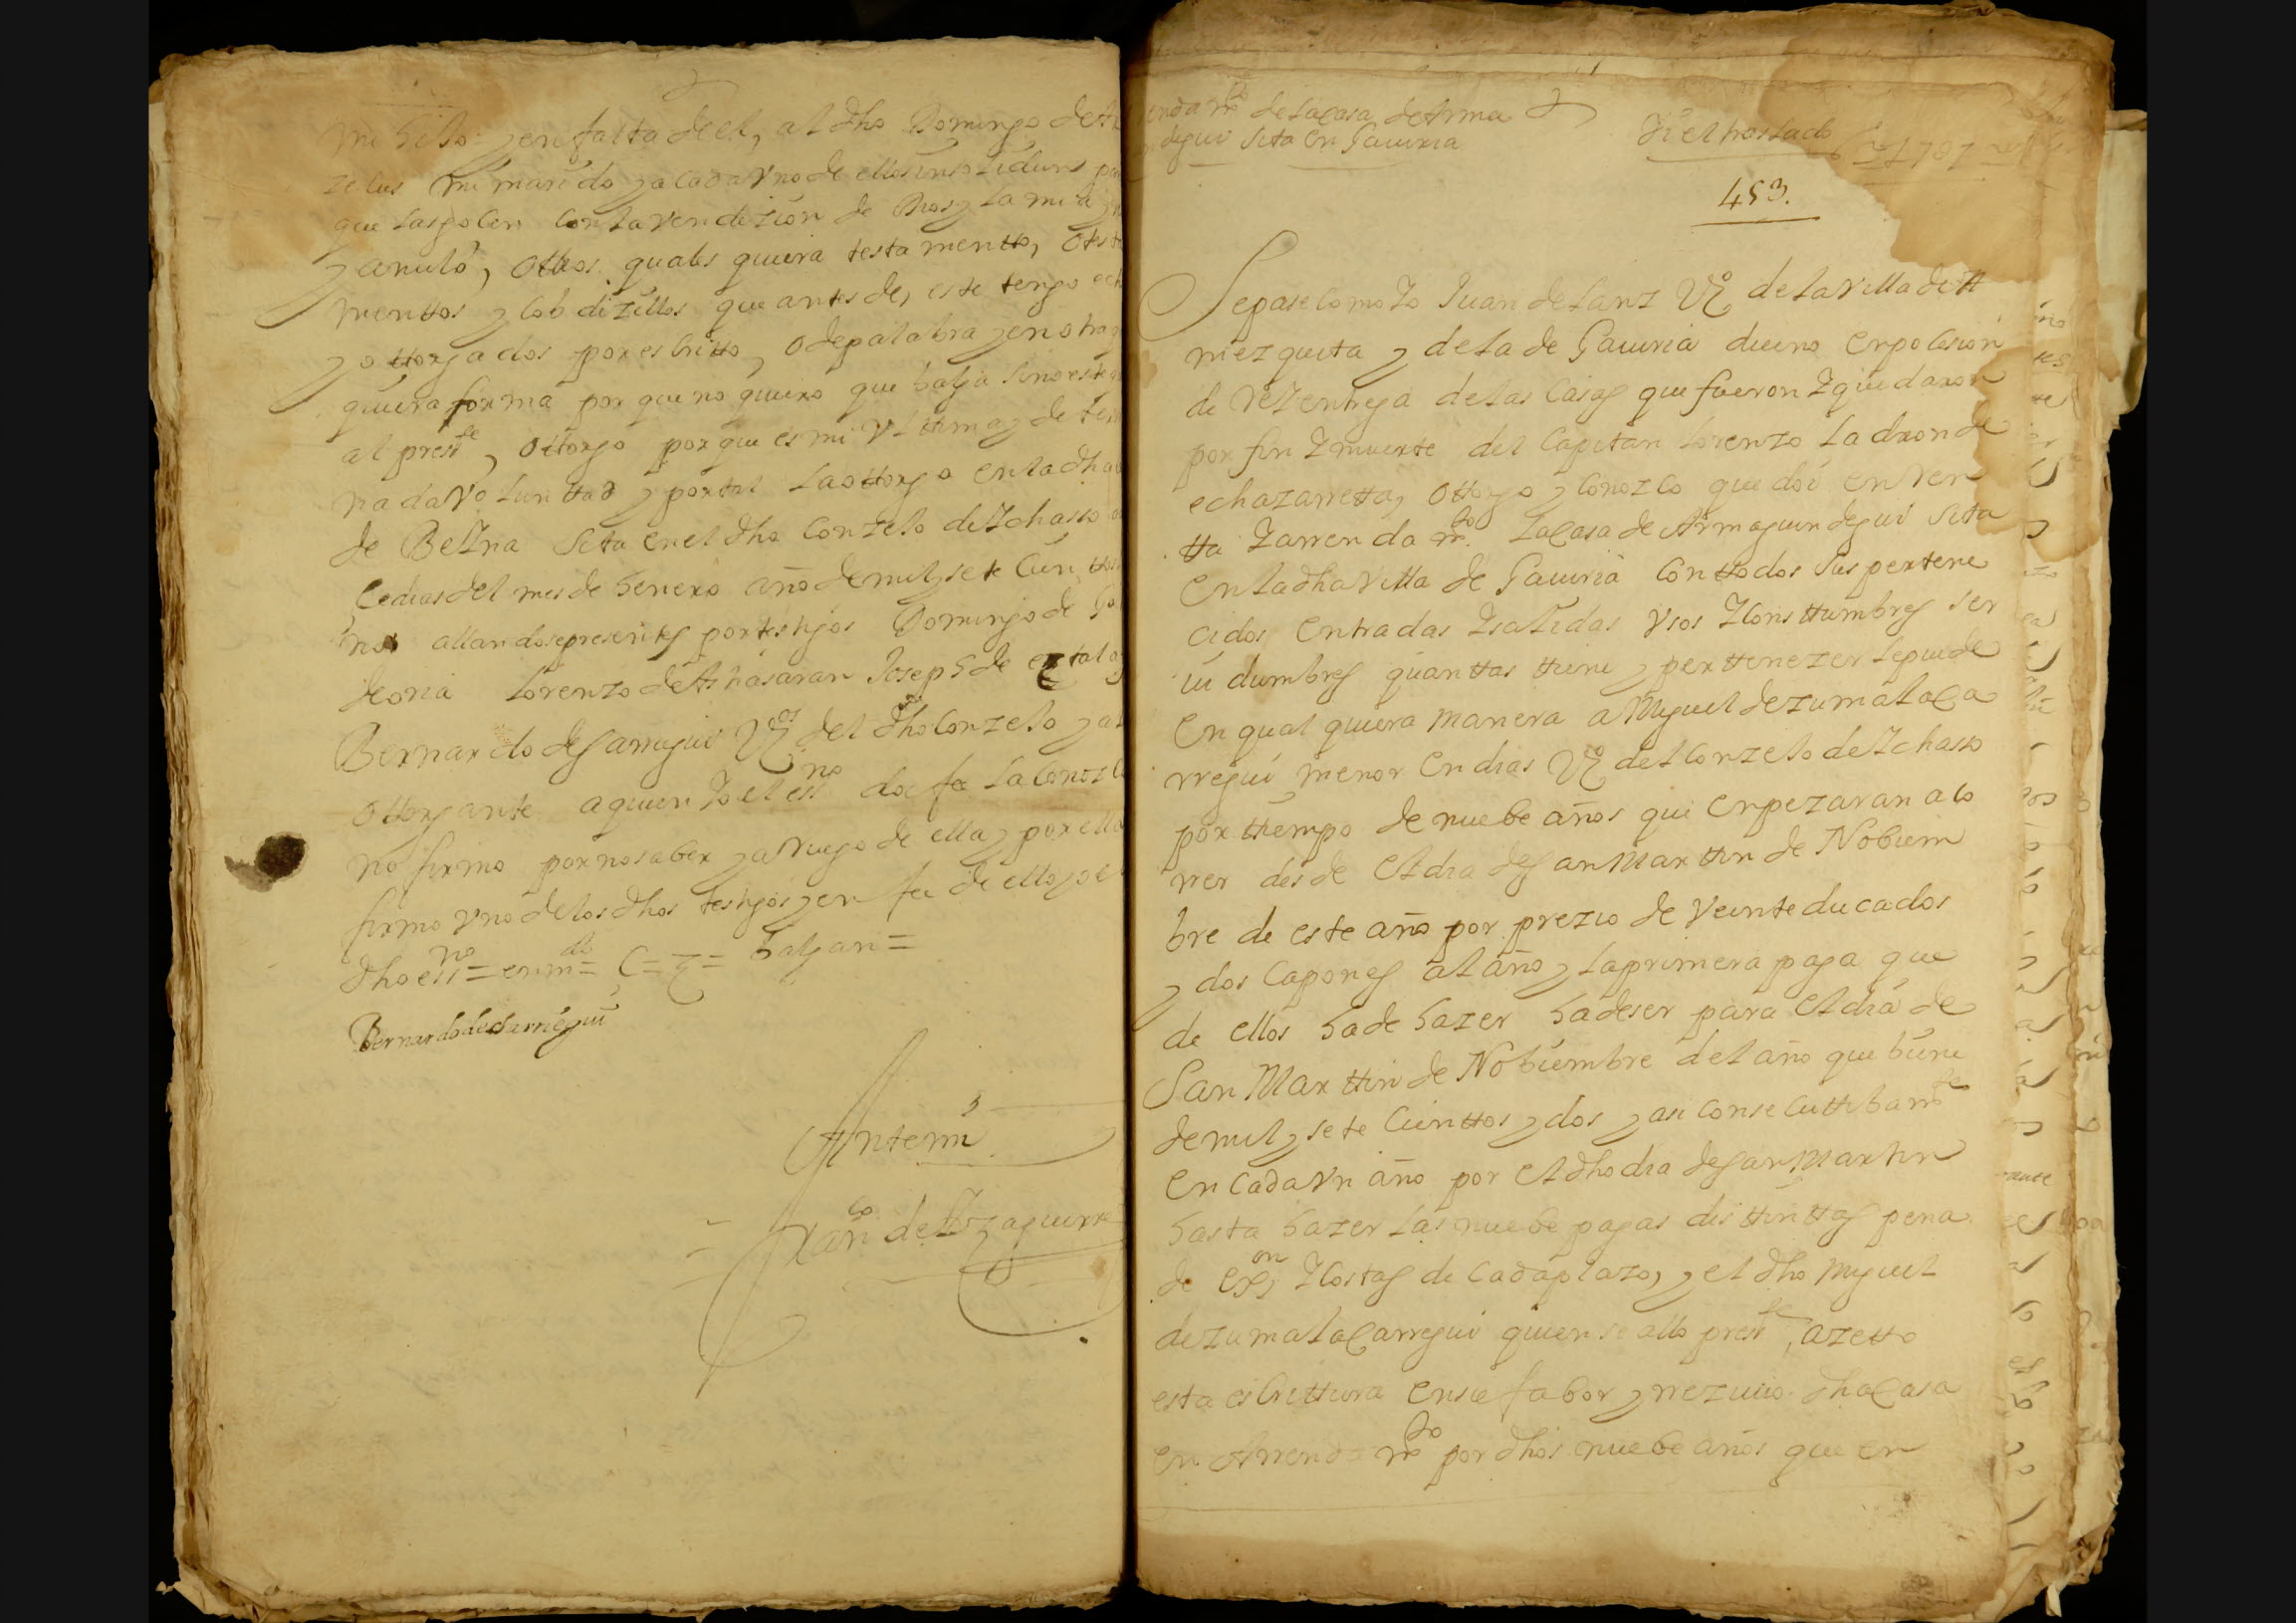 mi hijo y en falta de el, al dho Domingo de
zelus mi marido y a cada vno de ellos insolidum
que las gocen con la vendizion de Dios y la mia
y anulo, ottros qualesquiera testamentto,
menttos y cobdizillos que antes de, este tengo
y ottorgados por escritto, o de palabra y en otra
quiera forma por que no quiero que balga sino este
al press.te, ottorgo por que es mi vlttima y de
nada voluntad y por tal la ottorgo en la dha
de Belina sita en el dho Conzejo de Ychasso
ce dias del mes de henero año de mil y sete cien ttos
no allandose presentes por testigos Domingo de
de oria Lorenzo de Ashasaran Joseph de
Bernardo de Sarregui Vz.os del dho Conzejo y a
ottorgante a quien Yo el ess.no doi fe la conozco
no firmo por no saber y a ruego de ella y por ella
firmo vno de los dhos testigos y en fee de ello yo el
dho ess.no = enm.do = C = Z = balgan =
Bernardo de Sarregui
Antemi
Fran.co de Yzaguirre
endam.to de la casa de Arma
degui sita en Gaviria
Di el traslado
1701
453.
Sepase como Yo Juan de Lanz Vz.o de la villa de
niezqueta y de la de Gaviria dueno en posesion
de vez entrega de las casas que fueron Y quedaron
por fin Y muerte del Capitan Lorenzo Ladron de
echazarretta, ottorgo y conozco que doi en ren
tta Y arrendam.to La casa de Armaguin degui sita
en la dha villa de Gaviria con ttodos sus pertene
cidos, entradas Y salidas vsos Y consttumbres ser
uidumbres quanttas ttiene y perttenezer le puede
en qualquiera manera a Miguel de zumalaca
rregui menor en dias Vz.o del Conzejo de Ychasso
por ttiempo de nuebe años que enpezaran a co
rrer desde el dia de San Marttin de Nobiem
bre de este año por prezio de veinte ducados
y dos capones al año y la primera paga que
de ellos ha de hazer ha de ser para el dia de
San Marttin de Nobiembre del año que biene
de mil y sete cienttos y dos y asi consecuttibam.te
en cada vn año por el dho dia de San Martin
hasta hazer las nuebe pagas disttinttas pena
de ex.on Y costas de cada plazo, y el dho Miguel
de zumalacarregui quien se allo press.te, azetto
esta escrittura en su fabor y rrezivio dha casa
en Arrendam.to por dhos nuebe años que en